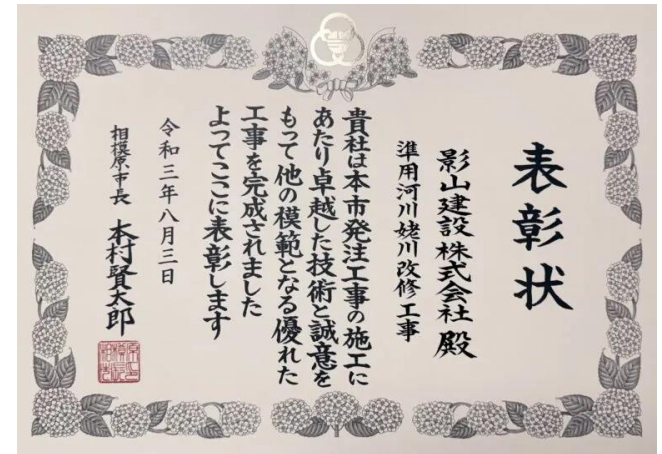 表彰状
影山建設株式会社 殿
準用河川姥川改修工事
貴社は本市発注工事の施工に
あたり卓越した技術と誠意を
もって他の模範となる優れた
工事を完成されました
よってここに表彰します
令和三年八月三日
相模原市長 本村賢太郎